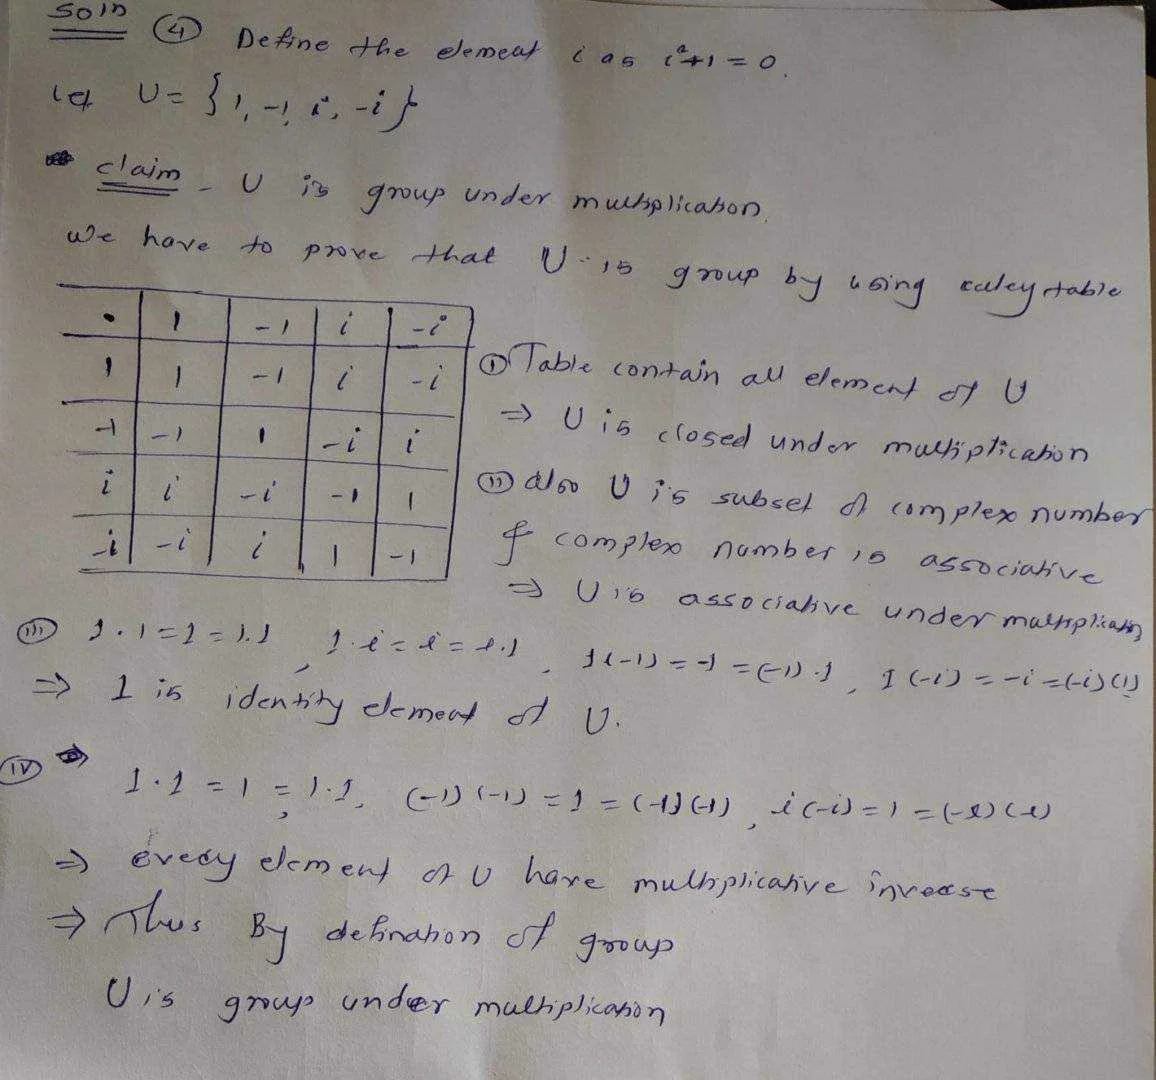 Soln ④ Define the element i as i²+1=0.
let U = {1, -1, i, -i}
claim - U is group under multiplication.
We have to prove that U is group by using caley table
• 1 -1 i -i
1 1 -1 i -i
-1 -1 1 -i i
i i -i -1 1
-i -i i 1 -1
① Table contain all element of U
⇒ U is closed under multiplication
(ii) also U is subset of complex number
& complex number is associative
⇒ U is associative under multiplication
(iii) 1·1=1=1·1, 1·i=i=i·1, 1(-1)=-1=(-1)·1, 1(-i)=-i=(-i)(1)
⇒ 1 is identity element of U.
(iv) 1·1=1=1·1, (-1)(-1)=1=(-1)(-1), i(-i)=1=(-i)(i)
⇒ every element of U have multiplicative inverse
⇒ Thus By defination of group
U is group under multiplication